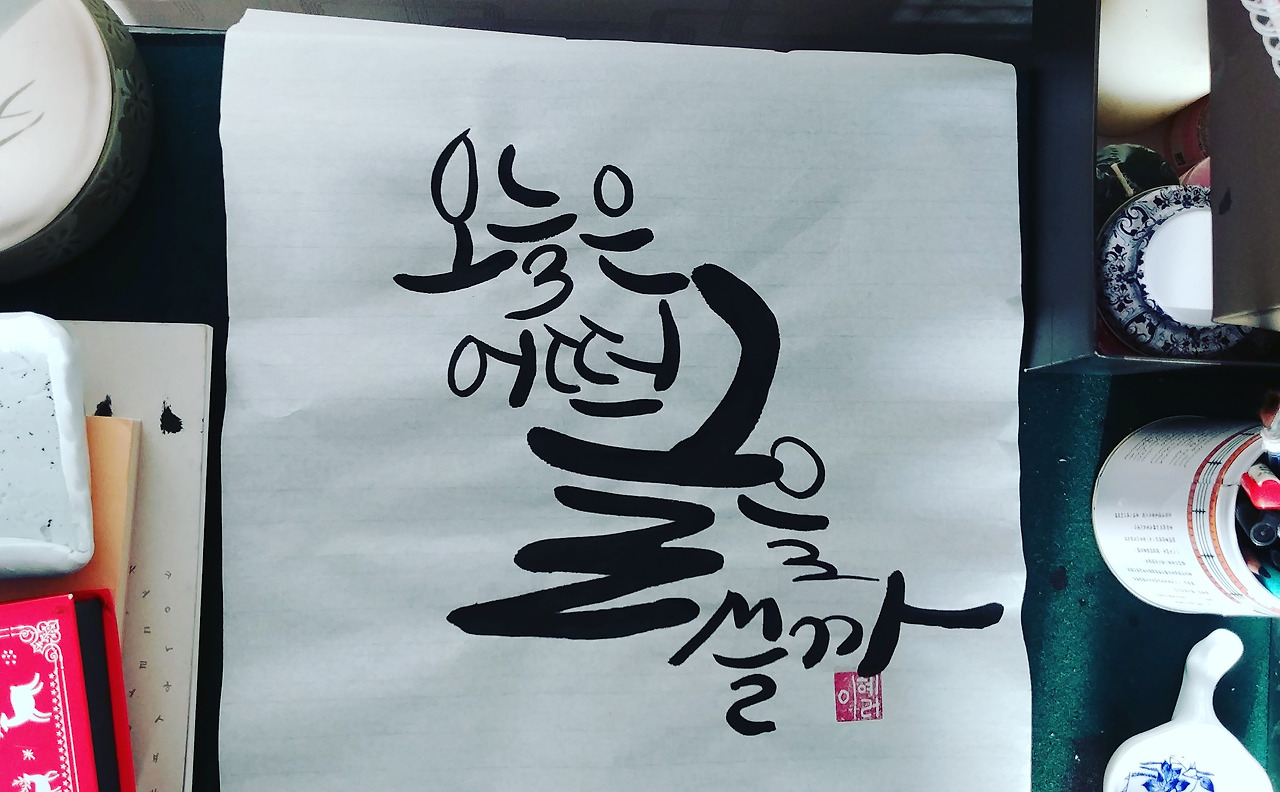 오늘은
어떤
글을
쓸까
이혜런